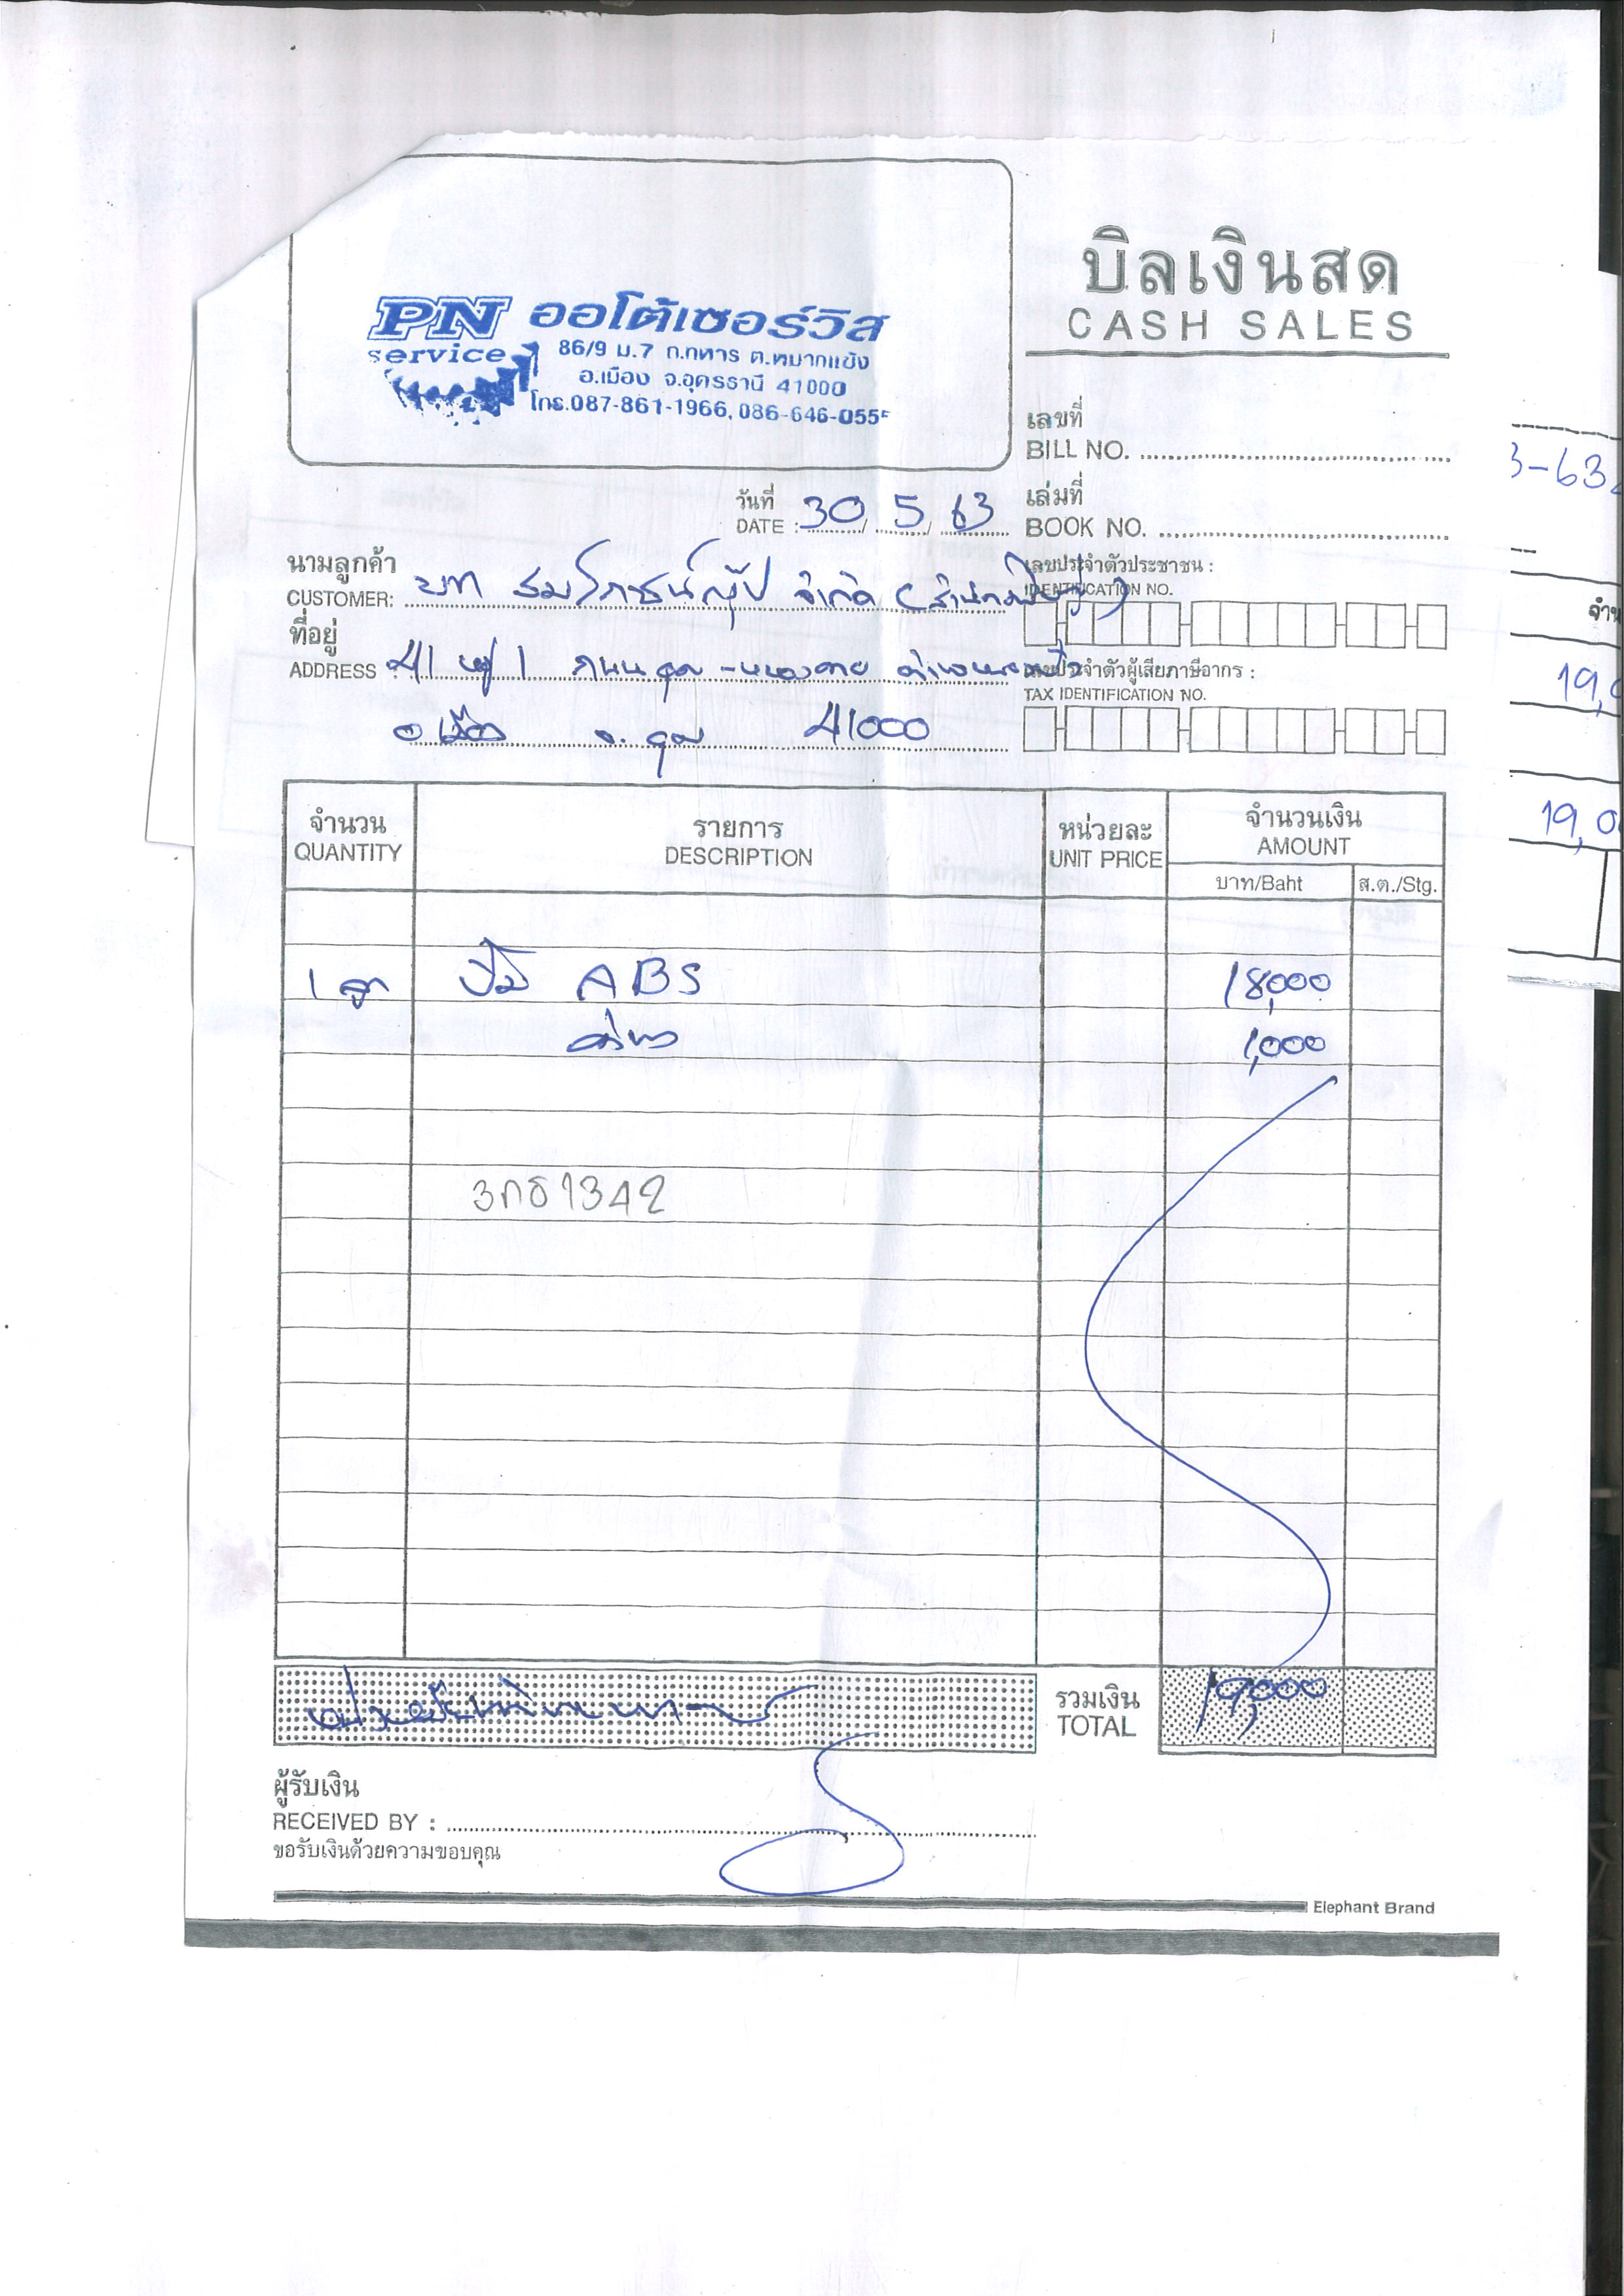 บิลเงินสด
CASH SALES
PN ออโต้เซอร์วิส
service
86/9 ม.7 ถ.ทหาร ต.หมากแข้ง
อ.เมือง จ.อุดรธานี 41000
โทร.087-861-1966, 086-646-055
เลขที่
BILL NO.
3-63
วันที่
DATE : 30 / 5 / 63
เล่มที่
BOOK NO.
นามลูกค้า
CUSTOMER: จำกัด
เลขประจำตัวประชาชน :
IDENTIFICATION NO.
ที่อยู่
ADDRESS : 41 หมู่ 1 ถนนอุดร-หนองคาย
เลขประจำตัวผู้เสียภาษีอากร :
TAX IDENTIFICATION NO.
อ.เมือง จ.อุดร 41000
จำนวน รายการ หน่วยละ จำนวนเงิน
QUANTITY DESCRIPTION UNIT PRICE AMOUNT
บาท/Baht ส.ต./Stg.
1 ลูก ปั๊ม ABS 18,000
1,000
3กธ1342
รวมเงิน
TOTAL 19,000
ผู้รับเงิน
RECEIVED BY :
ขอรับเงินด้วยความขอบคุณ
Elephant Brand